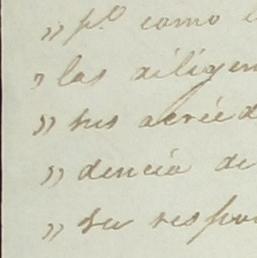 „ p.º como
„ las diligen
„ sus acréed
„ dencia de
„ su respon